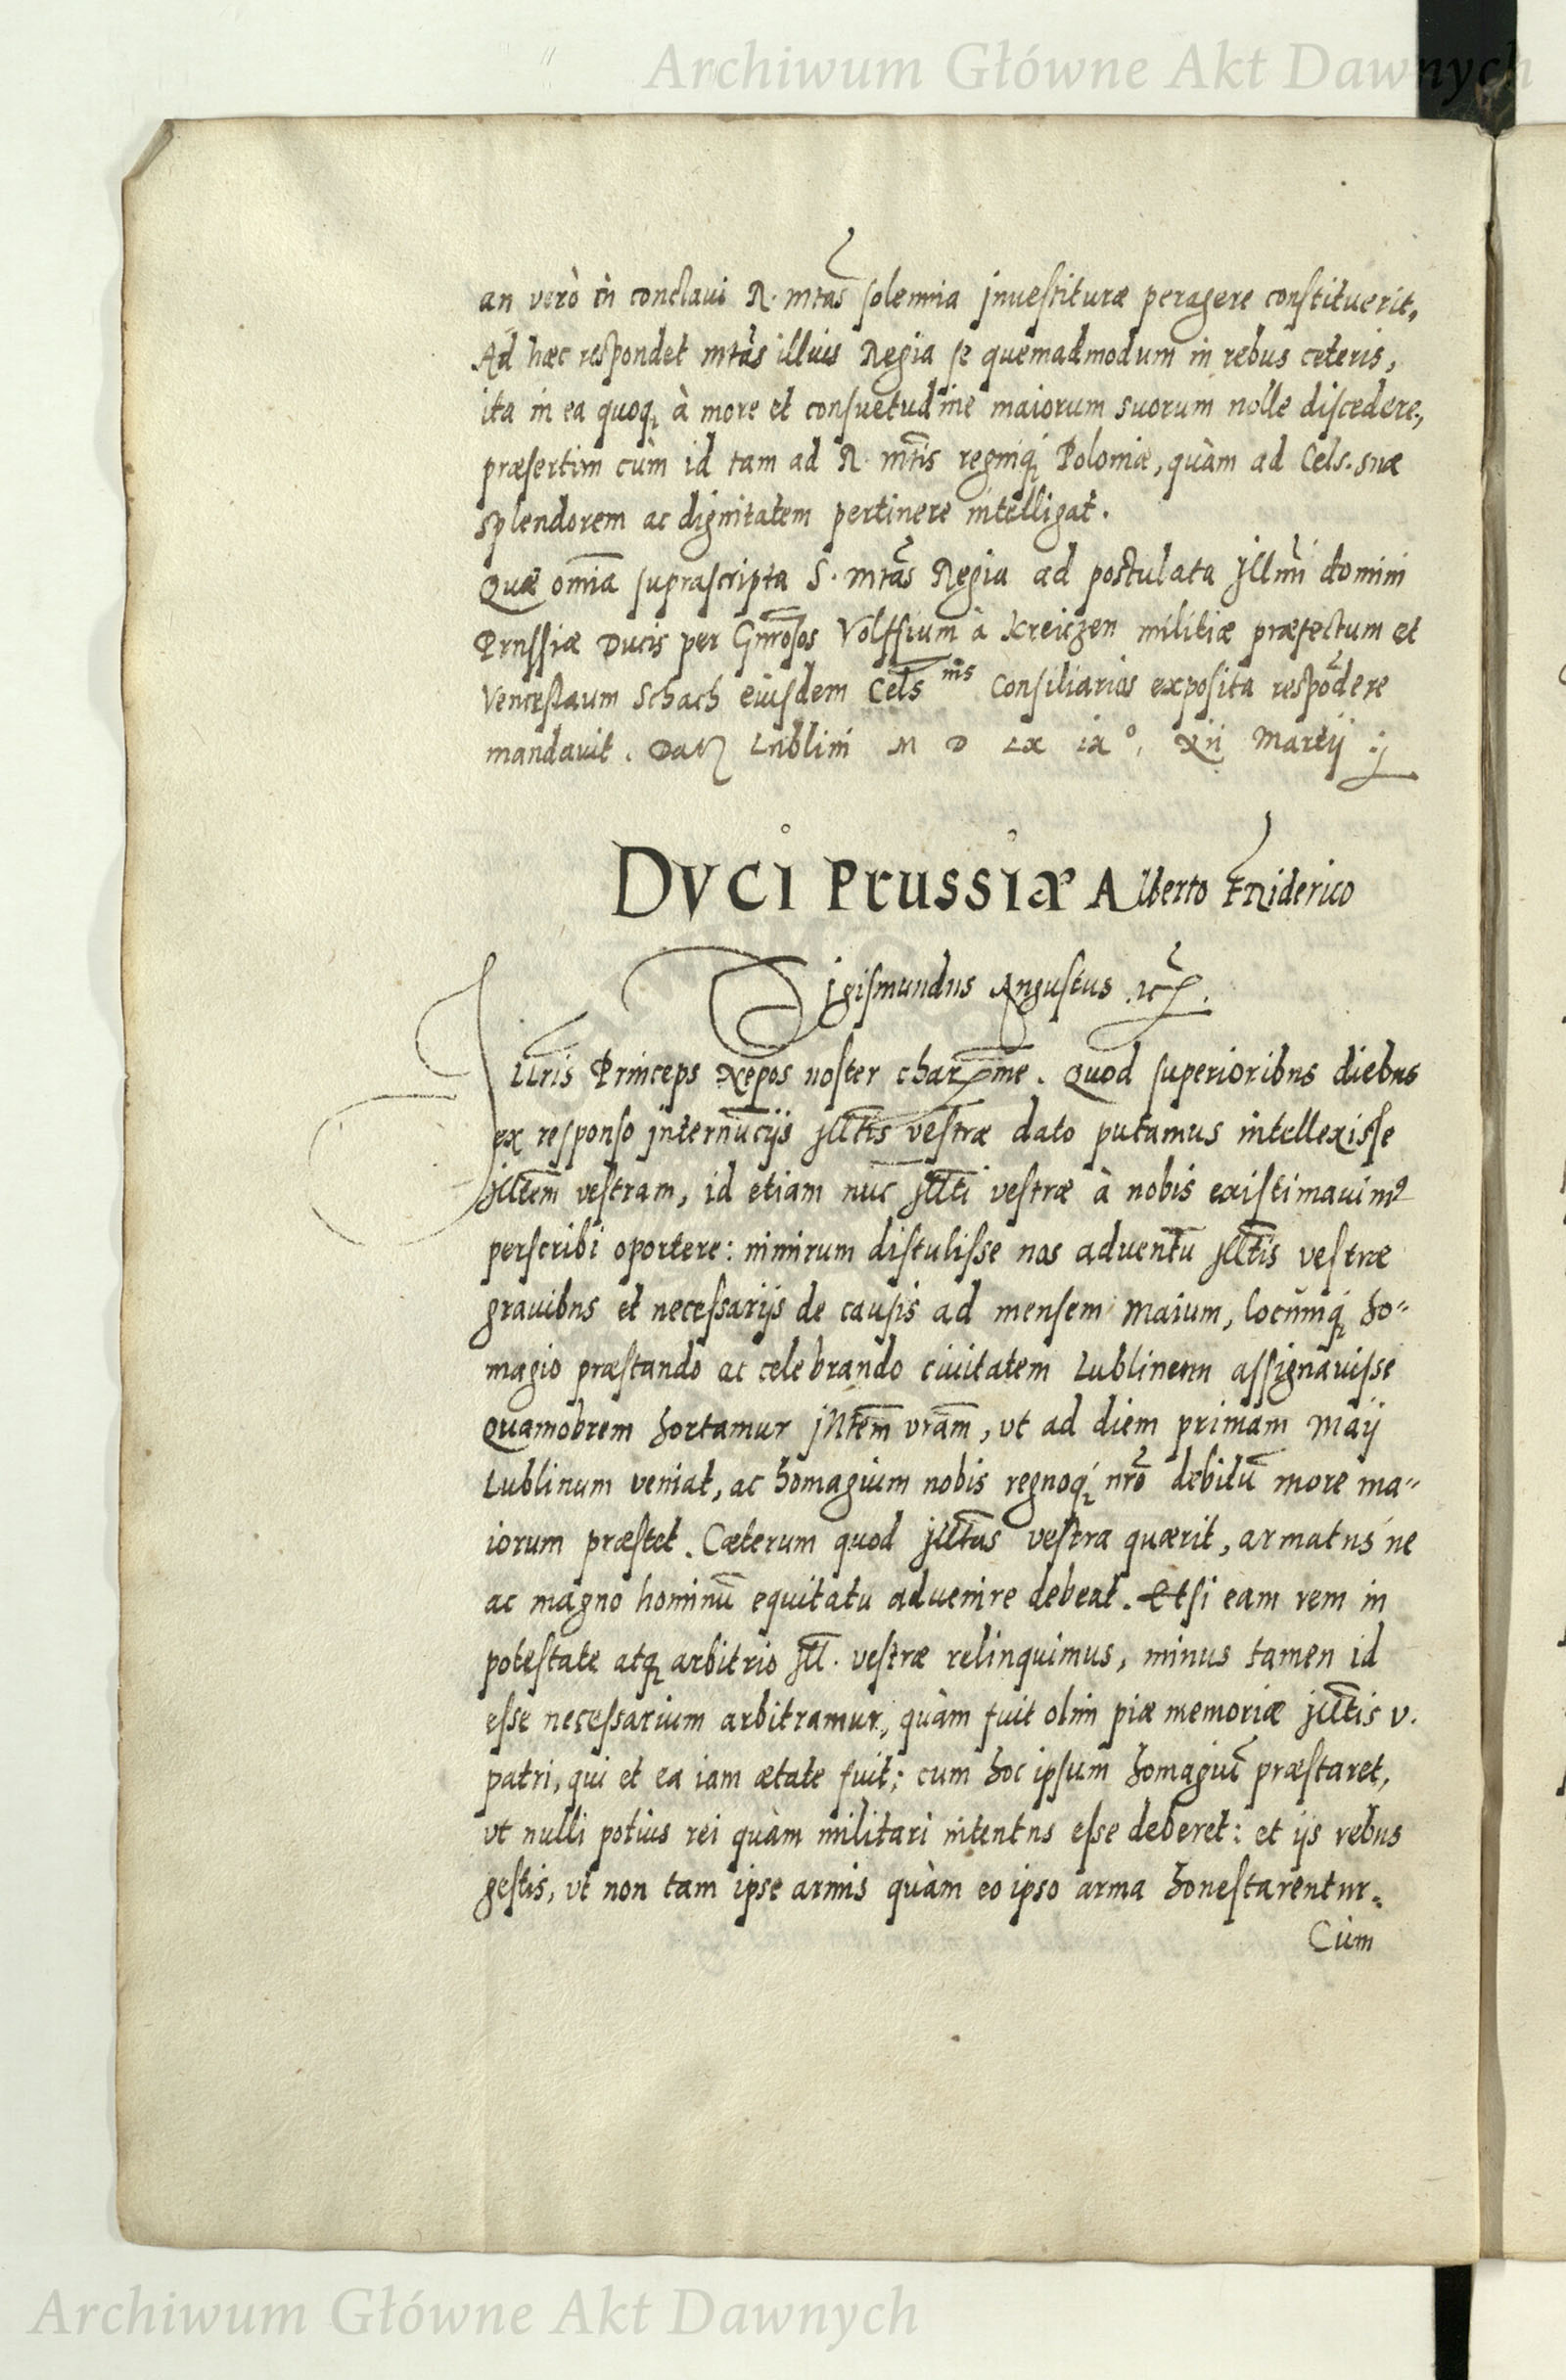 Archiwum Główne Akt Dawnych
an verò in conclaui R. mtas solemnia jnuestituræ peragere constituerit,
Ad hæc respondet mtas illius Regia se quemadmodum in rebus ceteris,
ita in ea quoq; à more et consuetudine maiorum suorum nolle discedere,
præsertim cùm id tam ad R. mtis regniq; Poloniæ, quàm ad Cels. suæ
splendorem ac dignitatem pertinere intelligat.
Quæ omia suprascripta S. mtas Regia ad postulata jllmi domini
Prussiæ Ducis per Gnrosos Volffium à Kreiczen militiæ præfectum et
Venceslaum Schach eiusdem Cels nis Consiliarios exposita respōdere
mandauit. Dat Lublini M D LX ix°, xii Martij
DVCI PrussIæ Alberto Friderico
Sigismundus Augustus etc.
Illris Princeps Nepos noster charme. Quod superioribus diebus
ex responso jnternūcijs jlltis vestræ dato putamus intellexisse
jlltem vestram, id etiam nūc jllti vestræ à nobis existimauim9
perscribi oportere: nimirum distulisse nos aduentū jlltis vestræ
grauibus et necessarijs de causis ad mensem Maium, locumq; ho=
magio præstando ac celebrando ciuitatem Lublinenn assignauisse
Quamobrem hortamur jlltem vram, vt ad diem primam Maij
Lublinum veniat, ac homagium nobis regnoq; nro debitū more ma=
iorum præstet. Cæterum quod jlltas vestra quærit, armatus ne
ac magno hominū equitatu aduenire debeat. Etsi eam rem in
potestate atq; arbitrio jll. vestræ relinquimus, minus tamen id
esse necessarium arbitramur, quàm fuit olim piæ memoriæ jlltis v.
patri, qui et ea iam ætate fuit; cum hoc ipsum homagiū præstaret,
vt nulli potius rei quàm militari intentus esse deberet: et ijs rebus
gestis, vt non tam ipse armis quàm eo ipso arma honestarentur.
Cum
Archiwum Główne Akt Dawnych